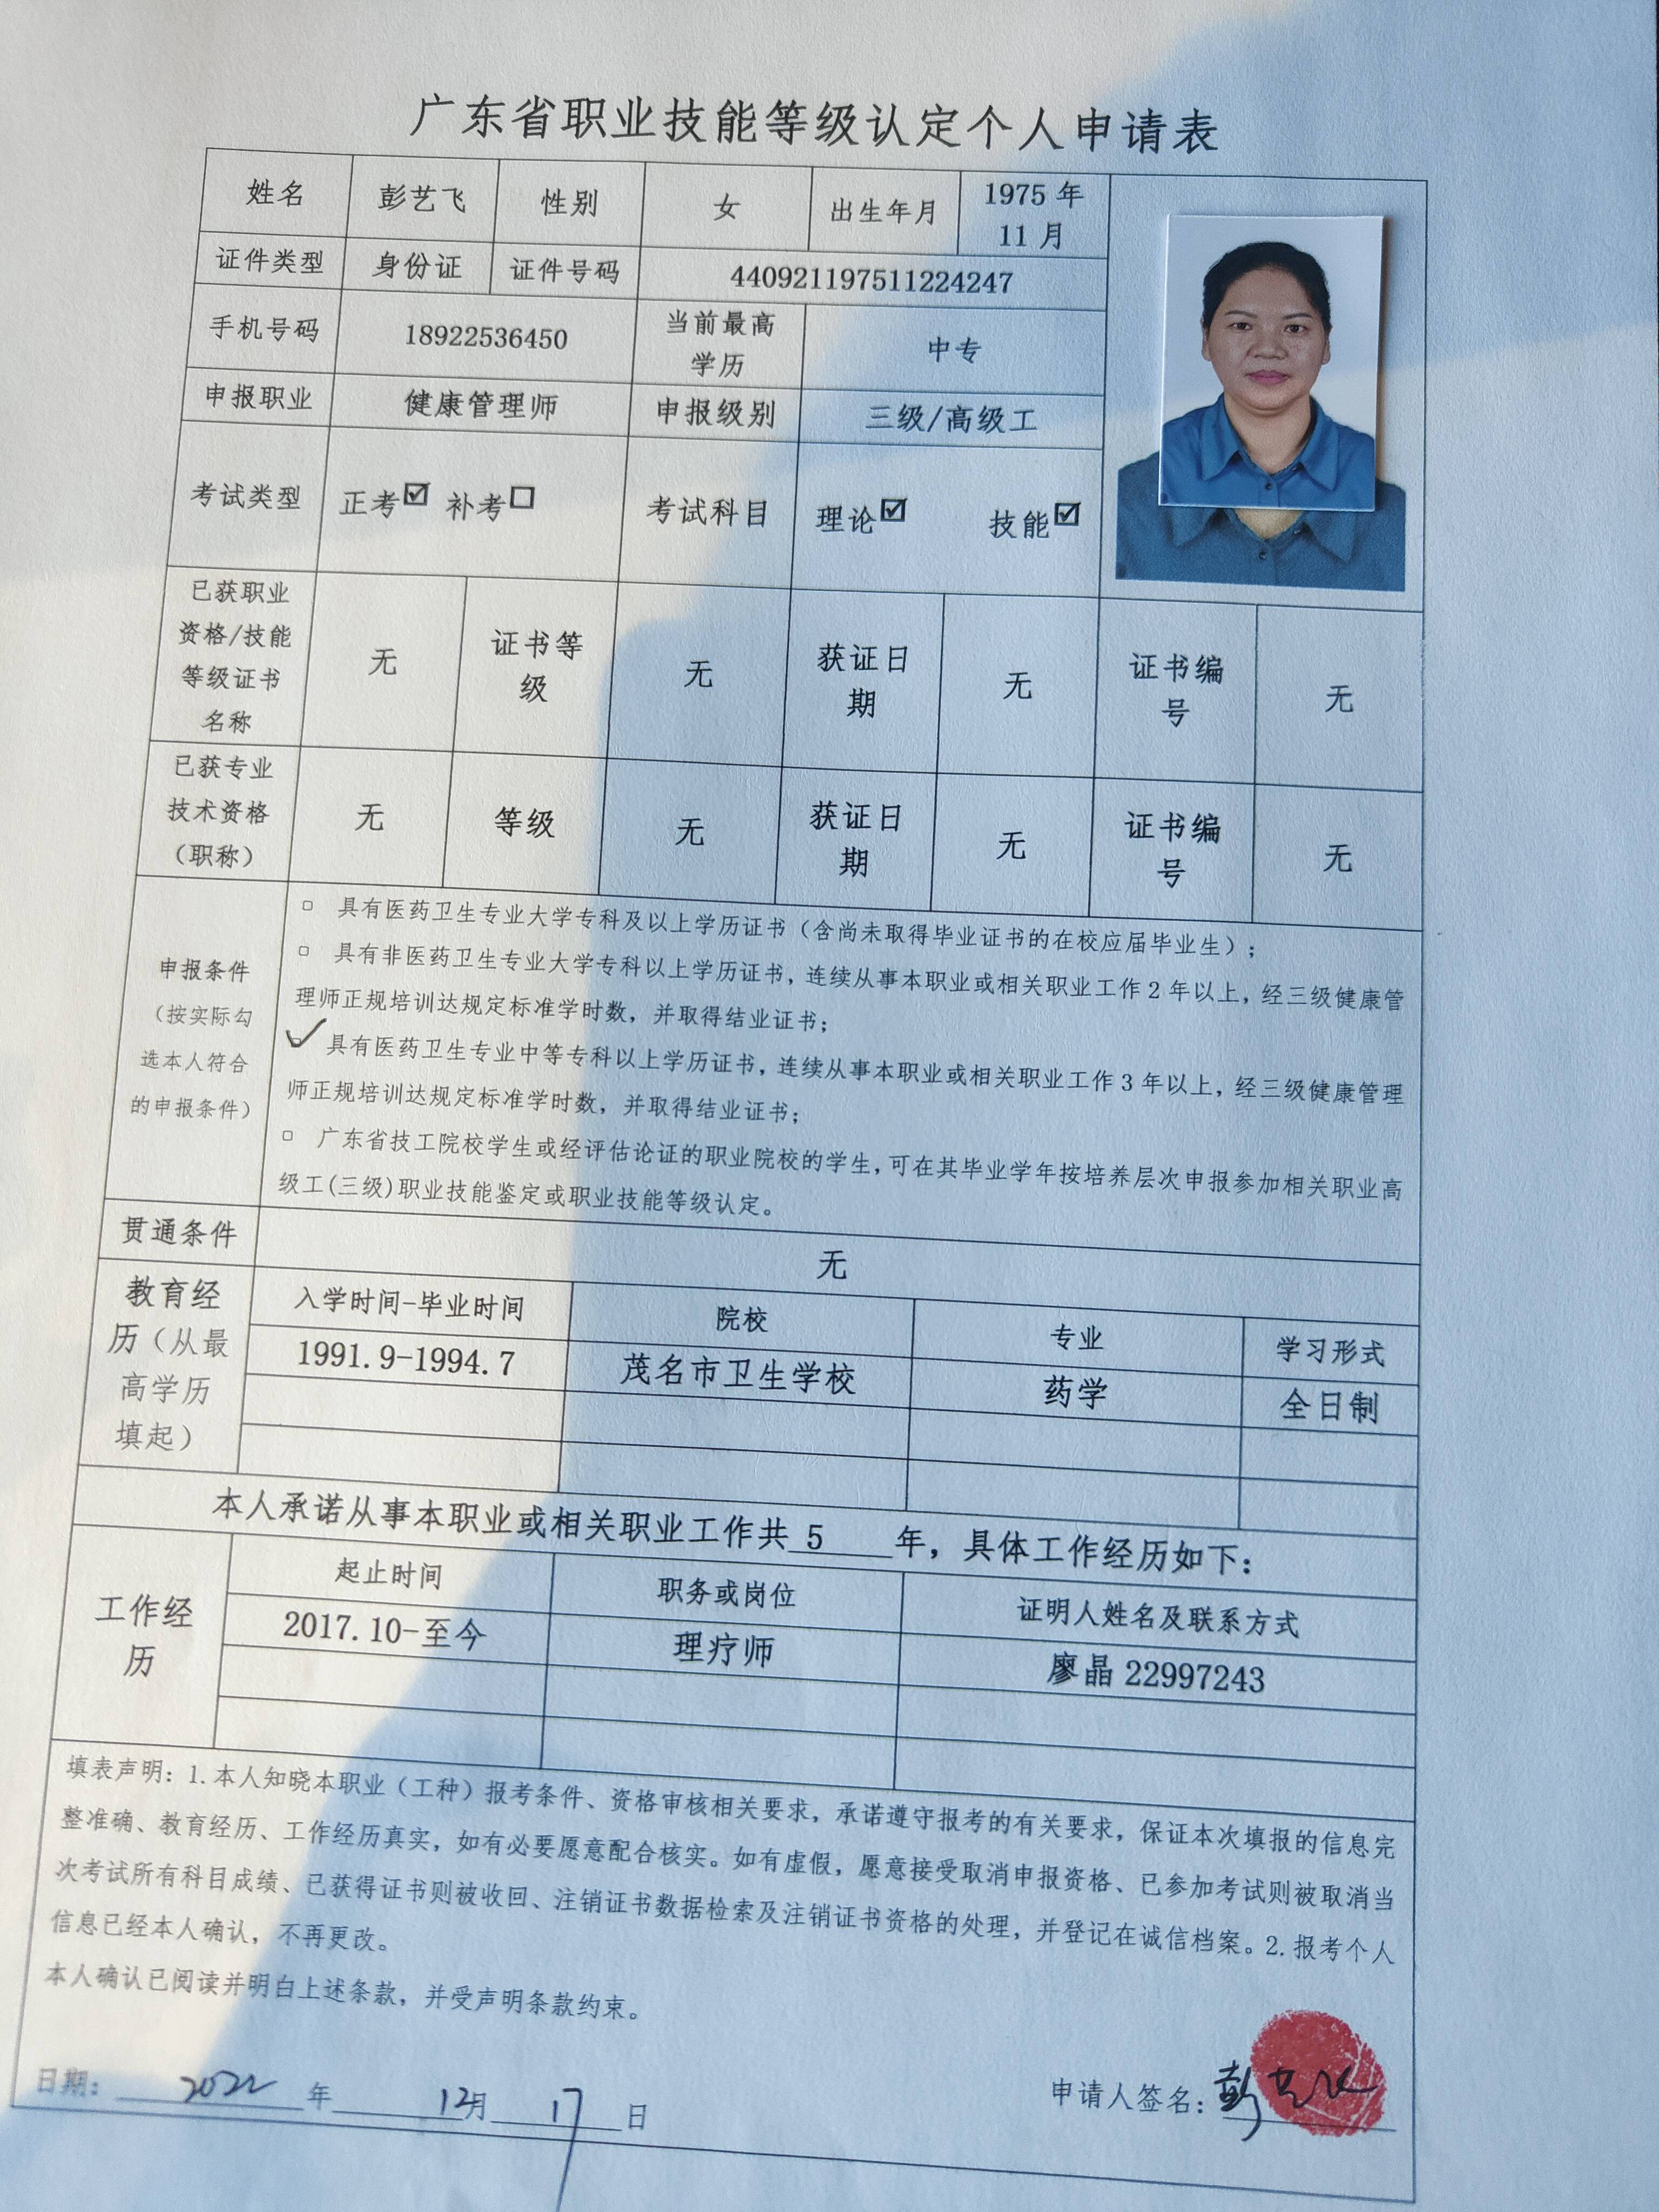 广东省职业技能等级认定个人申请表
姓名 彭艺飞 性别 女 出生年月 1975 年 11 月
证件类型 身份证 证件号码 440921197511224247
手机号码 18922536450 当前最高学历 中专
申报职业 健康管理师 申报级别 三级/高级工
考试类型 正考☑ 补考☐ 考试科目 理论☑ 技能☑
已获职业资格/技能等级证书名称 无 证书等级 无 获证日期 无 证书编号 无
已获专业技术资格（职称） 无 等级 无 获证日期 无 证书编号 无
申报条件（按实际勾选本人符合的申报条件）
□ 具有医药卫生专业大学专科及以上学历证书（含尚未取得毕业证书的在校应届毕业生）；
□ 具有非医药卫生专业大学专科以上学历证书，连续从事本职业或相关职业工作 2 年以上，经三级健康管
理师正规培训达规定标准学时数，并取得结业证书；
✓ 具有医药卫生专业中等专科以上学历证书，连续从事本职业或相关职业工作 3 年以上，经三级健康管理
师正规培训达规定标准学时数，并取得结业证书；
□ 广东省技工院校学生或经评估论证的职业院校的学生，可在其毕业学年按培养层次申报参加相关职业高
级工(三级)职业技能鉴定或职业技能等级认定。
贯通条件 无
教育经历（从最高学历填起） 入学时间-毕业时间 院校 专业 学习形式
1991.9-1994.7 茂名市卫生学校 药学 全日制
本人承诺从事本职业或相关职业工作共 5 年，具体工作经历如下：
工作经历 起止时间 职务或岗位 证明人姓名及联系方式
2017.10-至今 理疗师 廖晶 22997243
填表声明：1.本人知晓本职业（工种）报考条件、资格审核相关要求，承诺遵守报考的有关要求，保证本次填报的信息完
整准确、教育经历、工作经历真实，如有必要愿意配合核实。如有虚假，愿意接受取消申报资格、已参加考试则被取消当
次考试所有科目成绩、已获得证书则被收回、注销证书数据检索及注销证书资格的处理，并登记在诚信档案。2.报考个人
信息已经本人确认，不再更改。
本人确认已阅读并明白上述条款，并受声明条款约束。
日期： 2022 年 12 月 17 日 申请人签名：彭艺飞